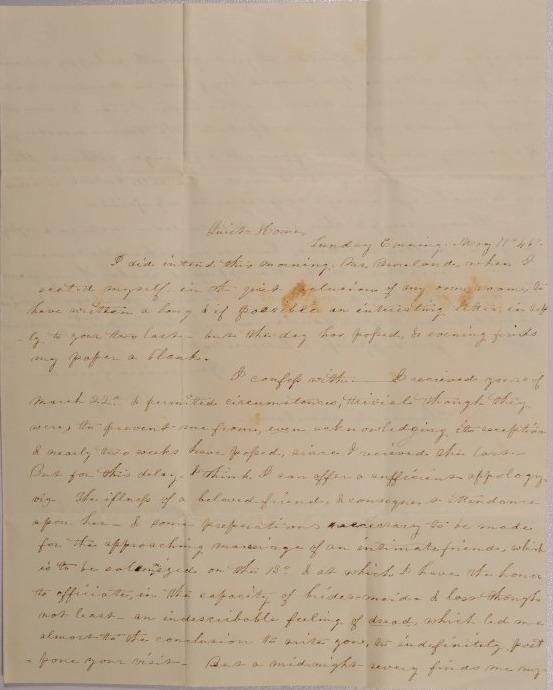 Quiet Home
Sunday Evening. May 11th 46.
I did intend this morning, Mr. when I
seated myself, in the quiet seclusion of my own room, to
have written a long & if possible an interesting letter, in rep
ly to your two last - but the day has passed, & evening finds
my paper a blank.
I confess with I recieved yours of
March 22d & permitted circumstances, trivial though they
were, to prevent me from, even acknowledging its reception
& nearly two weeks have passed, since I recieved the last -
But for this delay, I think I can offer a sufficient appology
viz. The illness of a beloved friend, & consequent attendance
upon her - & some preparations necessary to be made
for the approaching marriage of an intimate friend, which
is to be solemnized on the 13th & at which I have the honor
to officiate, in the capacity of bridesmaid & last though
not least - an indescribable feeling of dread, which led me
almost to the conclusion to write you, to indefinitely post
-pone your visit - But a midnight revery finds me my